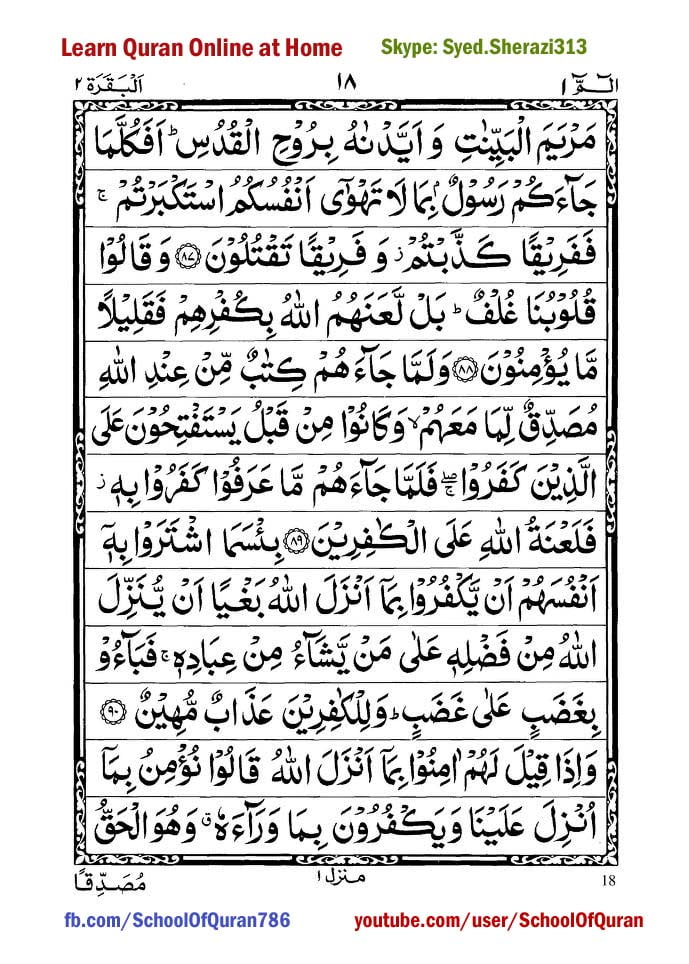 Learn Quran Online at Home Skype: Syed.Sherazi313
الٓمّٓ ١ ١٨ اَلْبَقَرَة ٢
مَرْيَمَ الْبَيِّنٰتِ وَ اَيَّدْنٰهُ بِرُوْحِ الْقُدُسِ ؕ اَفَكُلَّمَا
جَآءَكُمْ رَسُوْلٌۢ بِمَا لَا تَهْوٰٓى اَنْفُسُكُمُ اسْتَكْبَرْتُمْ ۚ
فَفَرِيْقًا كَذَّبْتُمْ ؗ وَ فَرِيْقًا تَقْتُلُوْنَ ﴿۸۷﴾ وَ قَالُوْا
قُلُوْبُنَا غُلْفٌ ؕ بَلْ لَّعَنَهُمُ اللّٰهُ بِكُفْرِهِمْ فَقَلِيْلًا
مَّا يُؤْمِنُوْنَ ﴿۸۸﴾ وَلَمَّا جَآءَهُمْ كِتٰبٌ مِّنْ عِنْدِ اللّٰهِ
مُصَدِّقٌ لِّمَا مَعَهُمْ ۙ وَكَانُوْا مِنْ قَبْلُ يَسْتَفْتِحُوْنَ عَلَى
الَّذِيْنَ كَفَرُوْا ۖۚ فَلَمَّا جَآءَهُمْ مَّا عَرَفُوْا كَفَرُوْا بِهٖ ؗ
فَلَعْنَةُ اللّٰهِ عَلَى الْكٰفِرِيْنَ ﴿۸۹﴾ بِئْسَمَا اشْتَرَوْا بِهٖٓ
اَنْفُسَهُمْ اَنْ يَّكْفُرُوْا بِمَآ اَنْزَلَ اللّٰهُ بَغْيًا اَنْ يُّنَزِّلَ
اللّٰهُ مِنْ فَضْلِهٖ عَلٰى مَنْ يَّشَآءُ مِنْ عِبَادِهٖ ۚ فَبَآءُوْ
بِغَضَبٍ عَلٰى غَضَبٍ ؕ وَلِلْكٰفِرِيْنَ عَذَابٌ مُّهِيْنٌ ﴿۹۰﴾
وَاِذَا قِيْلَ لَهُمْ اٰمِنُوْا بِمَآ اَنْزَلَ اللّٰهُ قَالُوْا نُؤْمِنُ بِمَآ
اُنْزِلَ عَلَيْنَا وَيَكْفُرُوْنَ بِمَا وَرَآءَهٗ ۗ وَهُوَ الْحَقُّ
مُصَدِّقًا منزل ١ 18
fb.com/SchoolOfQuran786 youtube.com/user/SchoolOfQuran